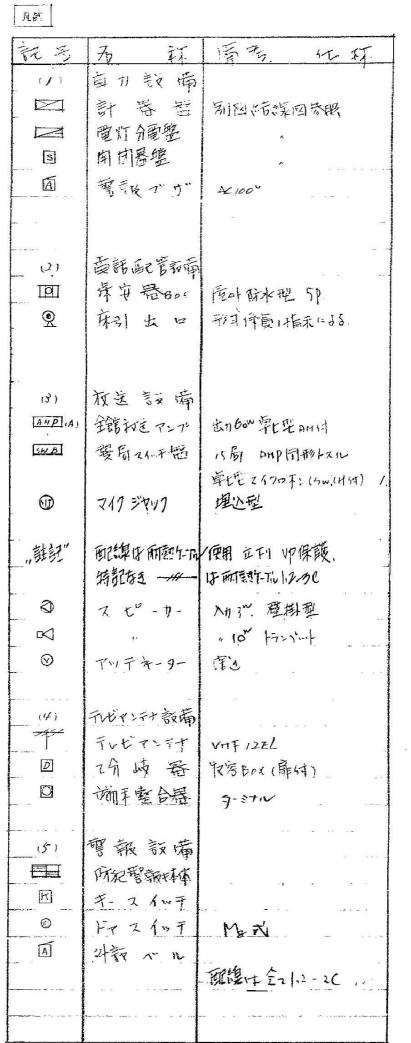 凡例
記号 名称 備考 仕様
(1) 自力設備
計器盤 別図結線図参照
電灯分電盤 〃
S 開閉器盤 〃
A 警報ブザ AC100V
(2) 電話配管設備
保安器BOX 屋外防水型 5P
床引出口
(3) 放送設備
AMP (A) 全館放送アンプ 出力60W 卓上型AM付
選局スイッチ盤 15局 AMP同形
マイクジャック 埋込型
"註記" 配線は耐熱ケーブル使用 立下り VP保護.
特記なき は耐熱ケーブル1.2-3C
スピーカー 入力3W 壁掛型
〃 〃 10W トランペット
アッテネーター
(4) テレビアンテナ設備
テレビアンテナ VHF 12EL
D 2分岐器 収容BOX (扉付)
端子整合器 ターミナル
(5) 警報設備
防犯警報本体
K キースイッチ
ドアスイッチ Mg式
A 外部ベル
配線は全て1.2-2C